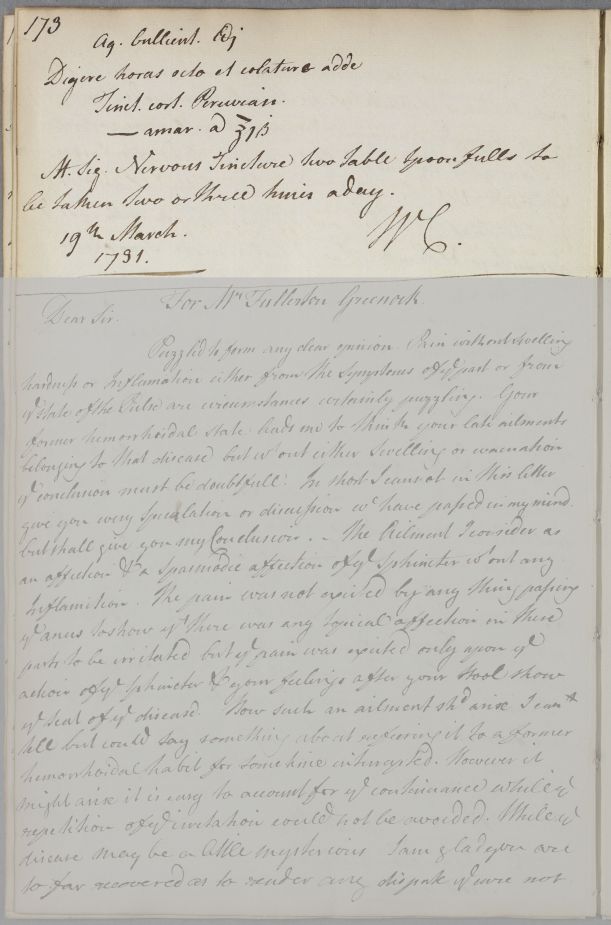 173
Aq. bullient. ℔j
Digere horas octo et colaturæ adde
Tinct. cort. Peruvian.
— amar. a ʒjß
M. Sig. Nervous Tincture two table spoonfulls to
be taken two or three times a day.
19th March.
1781.
WC.
For Mr Fullerton Greenock
Dear Sir.
Puzzled to form any clear opinion. Pain without swelling
hardness or Inflamation either from the Symptoms of ye part or from
ye state of the Pulse are circumstances certainly puzzling. Your
former hemorrhoidal state leads me to think your late ailments
belonging to that disease but wt out either Swelling or evacuation
ye conclusion must be doubtfull. In short I cannot in this letter
give you every Speculation or discussion wc have passed in my mind
but shall give you my Conclusion. – The Ailment I consider as
an affection & a Spasmodic affection of ye Sphincter wt out any
Inflamition. The pain was not excited by any thing passing
ye anus to show yt there was any topical affection in these
parts to be irritated but ye pain was excited only upon ye
action of ye Sphincter & your feelings after your stool show
ye seat of ye disease. How such an ailment shd arise I cant
tell but could say something about referring it to a former
hemorrhoidal habit for some time interrupted. However it
might arise it is easy to account for ye continuance while ye
repetition of ye irritation could not be avoided. While ye
disease may be a little mysterious I am glad you are
so far recovered as to render any dispute if were not